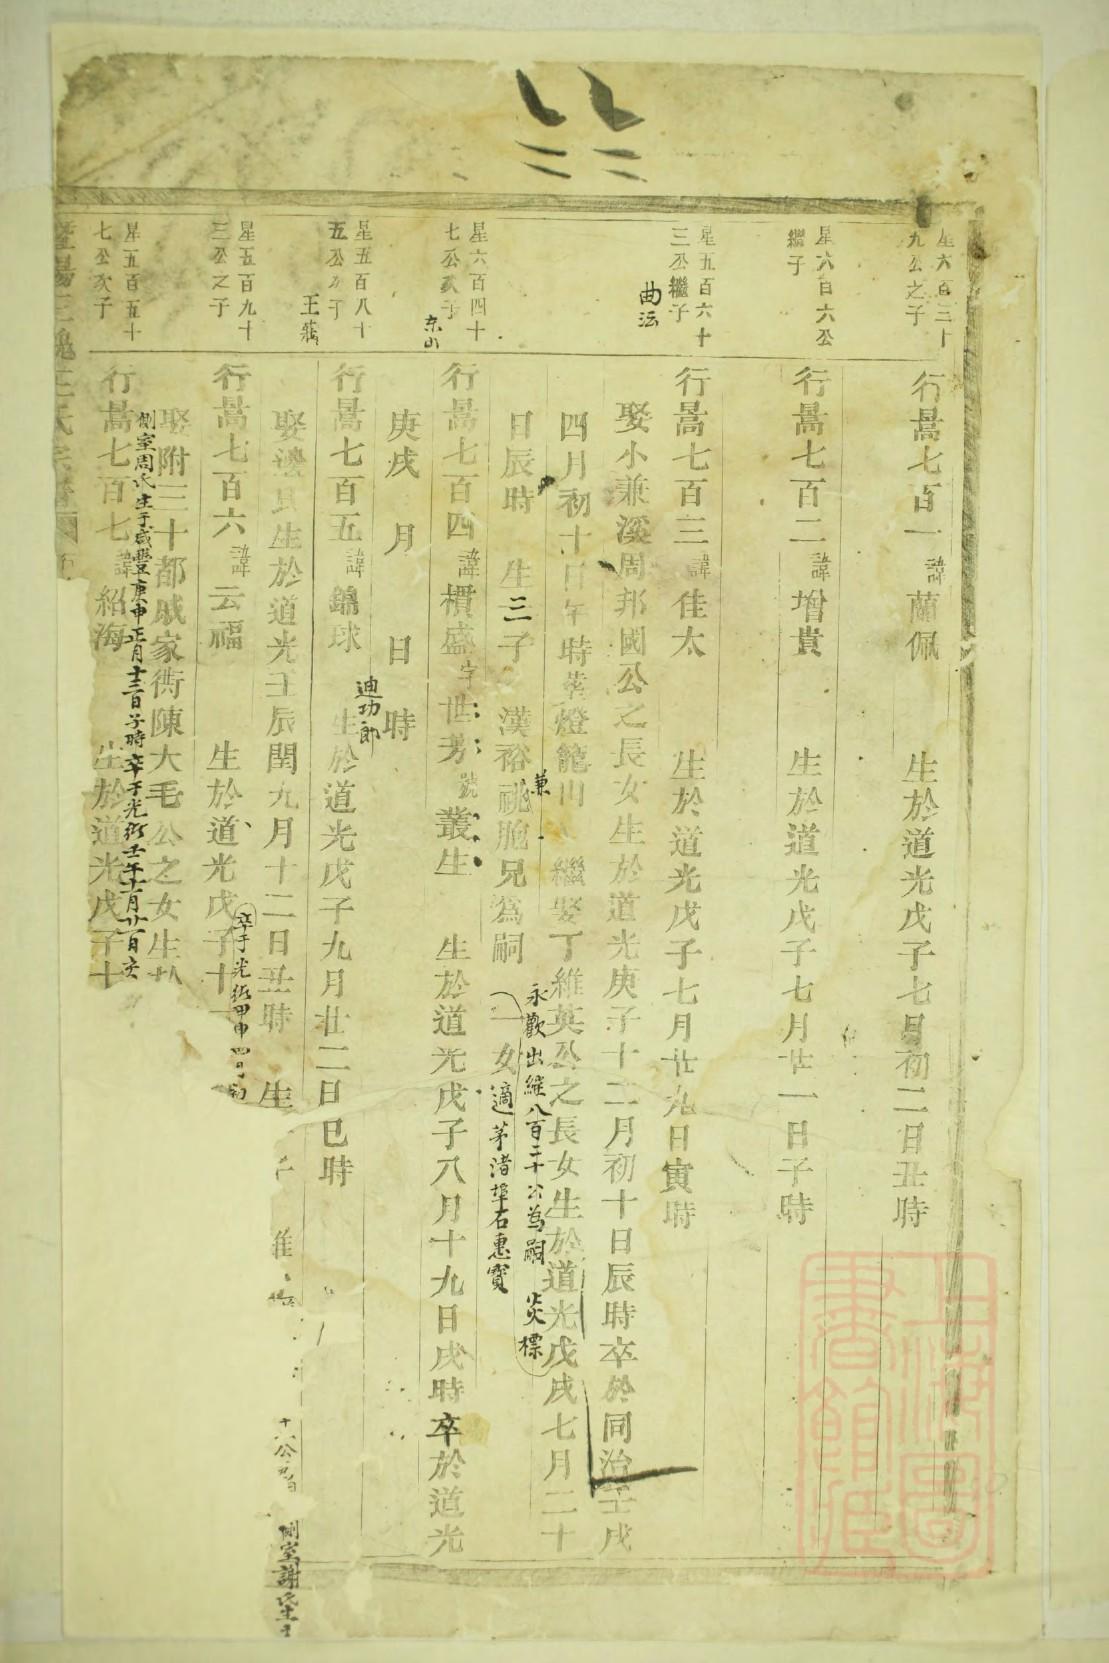 星六百三十
九公之子
行暠七百一 諱蘭佩 生於道光戊子七月初二日丑時
星六百六公
繼子
行暠七百二 諱增貴 生於道光戊子七月廿一日子時
星五百六十
三公繼子
曲沄
行暠七百三 諱佳太 生於道光戊子七月廿九日寅時
娶小兼溪周邦國公之長女生於道光庚子十二月初十日辰時卒於同治壬戌
四月初十日午時塟燈籠山 繼娶丁維英公之長女生於道光戊戌七月二十
日辰時 生三子 漢裕祧胞兄爲嗣 一女適茅渚埠石惠寶
兼
永歡出繼八百二十公爲嗣 炎標
星六百四十
七公次子
行暠七百四 諱樌盛 字世芳 號叢生 生於道光戊子八月十九日戌時卒於道光
庚戌 月 日 時
星五百八十
五公次子
王蒓
行暠七百五 諱錦球 生於道光戊子九月廿二日巳時
迪功郎
娶邊氏生於道光壬辰閏九月十二日丑時 生
星五百九十
三公之子
行暠七百六 諱云福 生於道光戊子十
卒于光緒甲申四月初
娶附三十都戚家衖陳大毛公之女生
側室周氏生于咸豐庚申正月十三日子時卒于光緒壬午
星五百五十
七公次子
行暠七百七 諱紹海 生於道光戊子十
側室謝氏生于
暨陽三槐王氏宗譜
上海圖書館藏